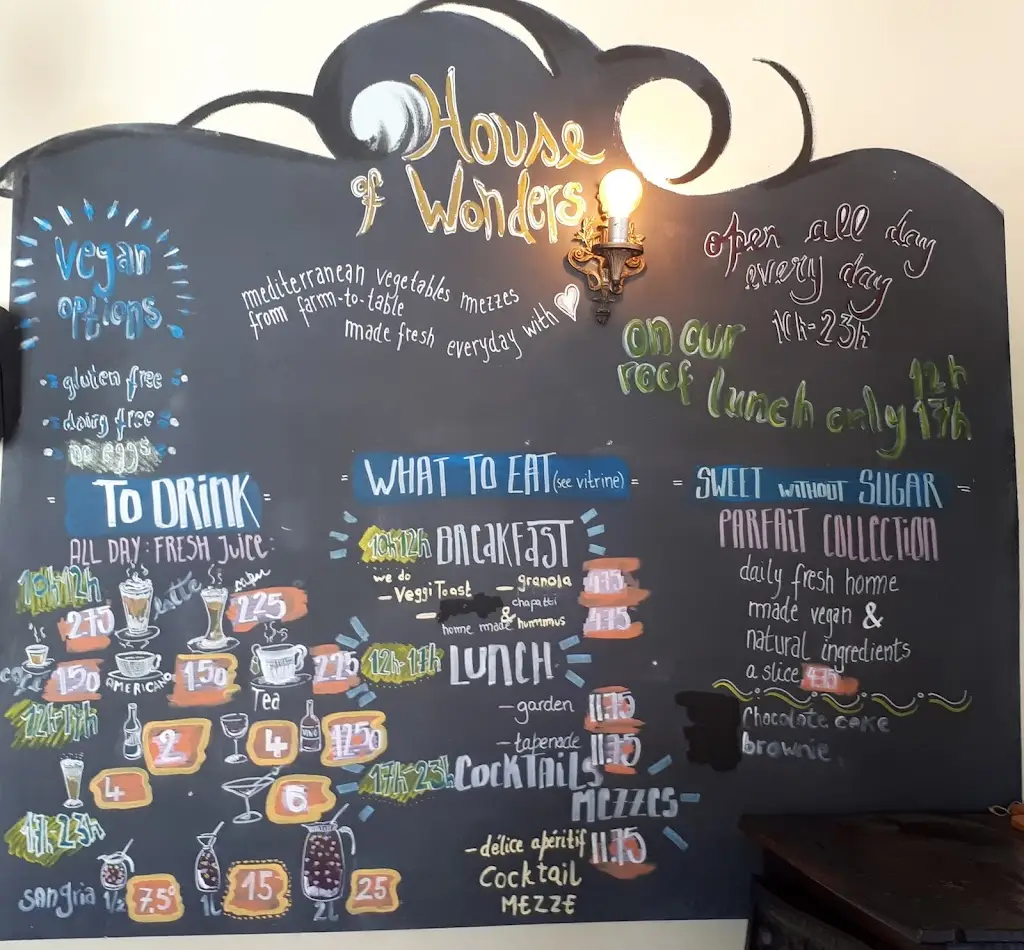 House
of Wonders
vegan
options
gluten free
dairy free
no eggs
mediterranean vegetables mezzes
from farm-to-table
made fresh everyday with
open all day
every day
on our
roof lunch only 12h
17h
TO DRINK
ALL DAY: FRESH JUICE
10h-12h
latte
2.75
2.25
1.50
AMERICANO
1.50
Tea
2.25
12h-17h
2
4
VINO
12.50
4
6
17h-23h
sangria 1/2 7.5
1L 15
2L 25
= WHAT TO EAT (see vitrine) =
10h-12h BREAKFAST
we do
- Veggi Toast
- granola 4.75
- & chapatti
home made hummus 4.75
12h-17h LUNCH
- garden 11.75
- tapenade 11.75
17h-23h COCKTAILS
MEZZES
- délice apéritif 11.75
Cocktail
MEZZE
= SWEET WITHOUT SUGAR =
PARFAIT COLLECTION
daily fresh home
made vegan &
natural ingredients
a slice 4.75
Chocolate cake
brownie